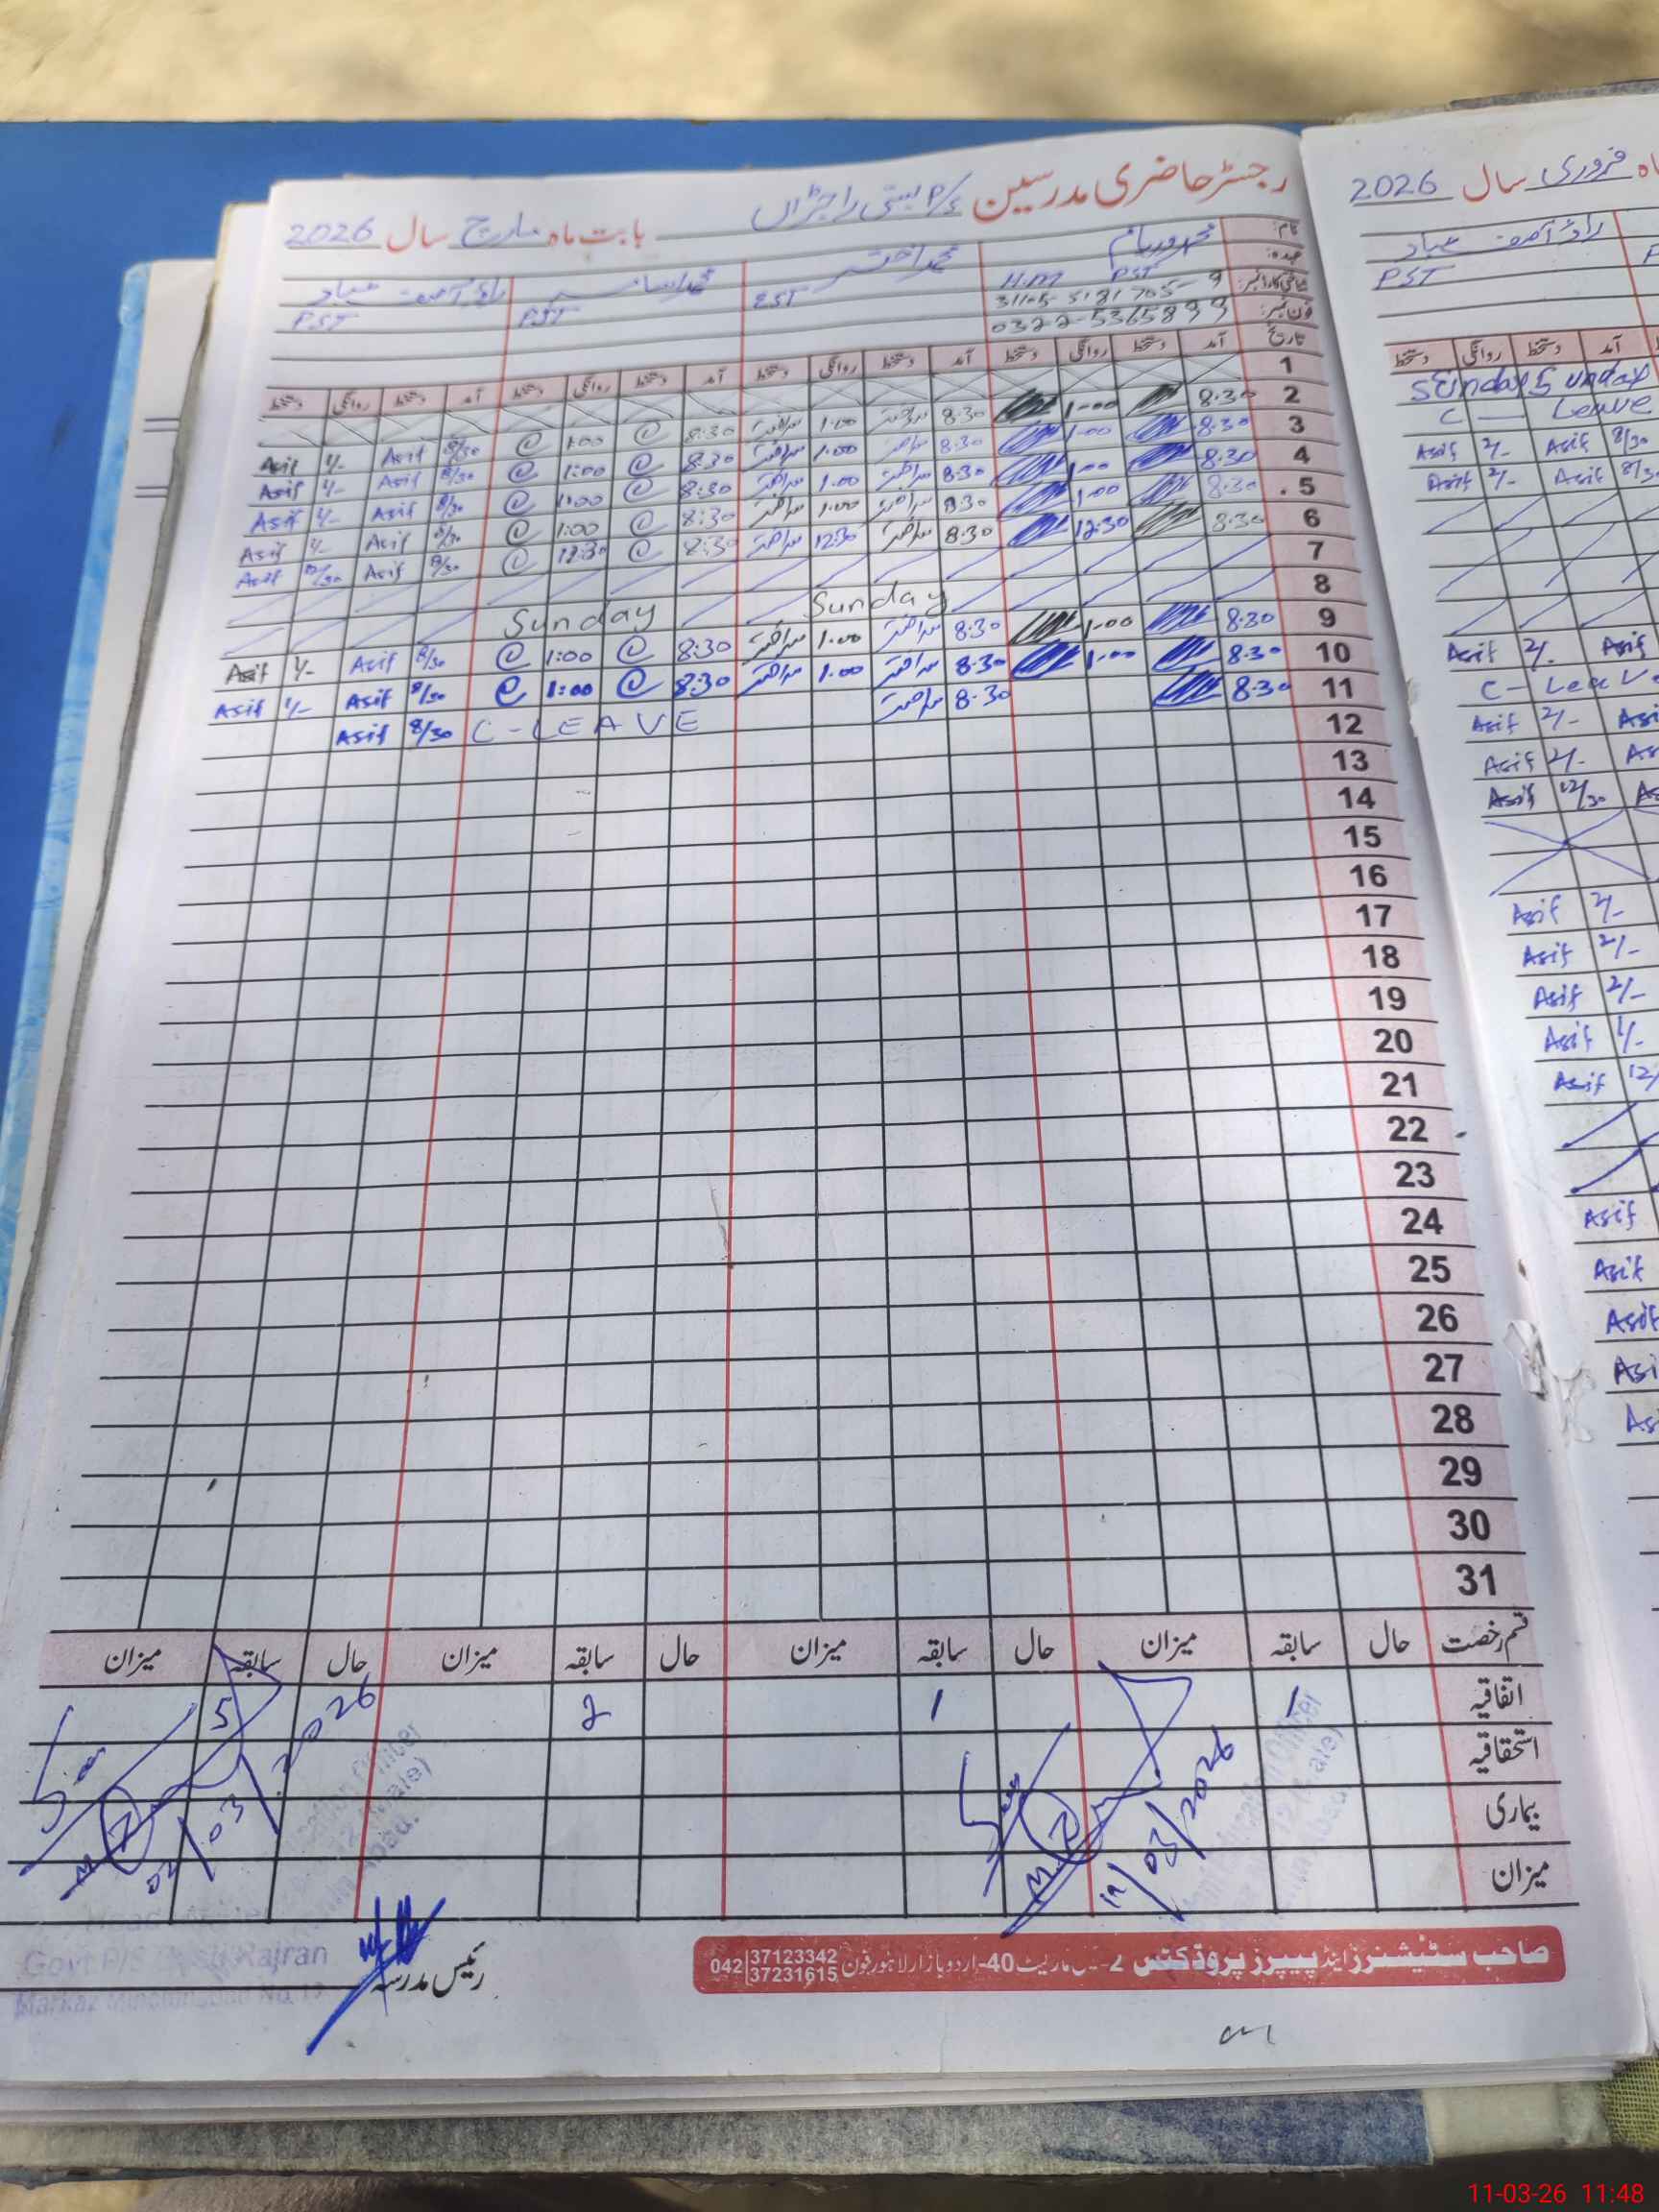 رجسٹر حاضری مدرسین P/S بستی راجڑاں بابت ماہ مارچ سال 2026
نام:
عہدہ: H.M PST EST PST PST
شناختی کارڈ نمبر:
فون نمبر: 0322-5365899
تاریخ آمد دستخط روانگی دستخط آمد دستخط روانگی دستخط آمد دستخط روانگی دستخط آمد دستخط روانگی دستخط
1
2 8:30 1-00 8:30 1:00 8:30 @ 1:00 @ 8/30 Asif 1/- Asif
3 8:30 1-00 8:30 1:00 8:30 @ 1:00 @ 8/30 Asif 1/- Asif
4 8:30 1-00 8:30 1:00 8:30 @ 1:00 @ 8/30 Asif 1/- Asif
5 8:30 1-00 8:30 1:00 8:30 @ 1:00 @ 8/30 Asif 1/- Asif
6 8:30 12:30 8:30 12:30 8:30 @ 12:30 @ 8/30 Asif 12/30 Asif
7
8 Sunday Sunday
9 8:30 1-00 8:30 1:00 8:30 @ 1:00 @ 8/30 Asif 1/- Asif
10 8:30 1-00 8:30 1:00 8:30 @ 1:00 @ 8/30 Asif 1/- Asif
11 8:30 8:30 C-LEAVE 8/30 Asif
12
13
14
15
16
17
18
19
20
21
22
23
24
25
26
27
28
29
30
31
قسم رخصت حال سابقہ میزان حال سابقہ میزان حال سابقہ میزان حال سابقہ میزان
اتفاقیہ 1 1 2 5
استحقاقیہ
بیماری
میزان
02/03/2026
11/03/2026
رئیس مدرسہ
Govt P/S Basti Rajran
صاحب سٹیشنرز اینڈ پیپرز پروڈکٹس
40-اردو بازار لاہور فون 042 37123342
37231615
ماہ فروری سال 2026
راؤ آصف عباد
PST
آمد دستخط روانگی دستخط
Sunday Sunday
C — Leave
Asif 2/- Asif 8/30
Asif 2/- Asif 8/30
Asif 2/- Asif
C-Leave
Asif 2/- Asi
Asif 2/- As
Asif 12/30 As
Asif 2/-
Asif 2/-
Asif 2/-
Asif 1/-
Asif 12/
Asif
Asif
Asif
Asi
As
11-03-26 11:48